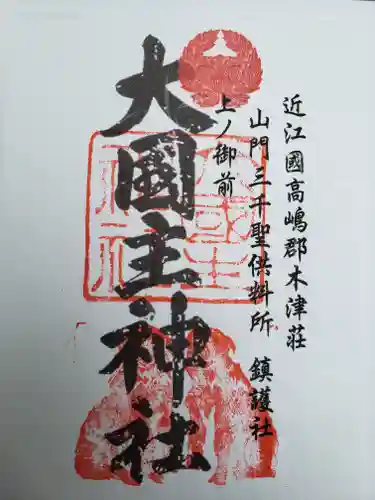 近江國高嶋郡木津荘
山門三千聖供料所　鎮護社
上ノ御前
大國主神社
大國主神社